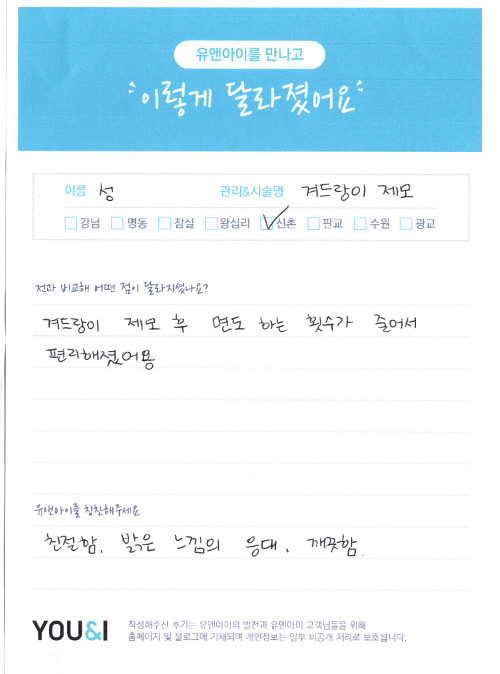 유앤아이를 만나고
이렇게 달라졌어요
이름 성 관리&시술명 겨드랑이 제모
강남 명동 잠실 왕십리 신촌 판교 수원 광교
전과 비교해 어떤 점이 달라지셨나요?
겨드랑이 제모 후 면도 하는 횟수가 줄어서
편리해졌어용
유앤아이를 칭찬해주세요
친절함, 밝은 느낌의 응대, 깨끗함.
YOU&I
작성해주신 후기는 유앤아이의 발전과 유앤아이 고객님들을 위해
홈페이지 및 블로그에 기재되며 개인정보는 일부 비공개 처리로 보호됩니다.